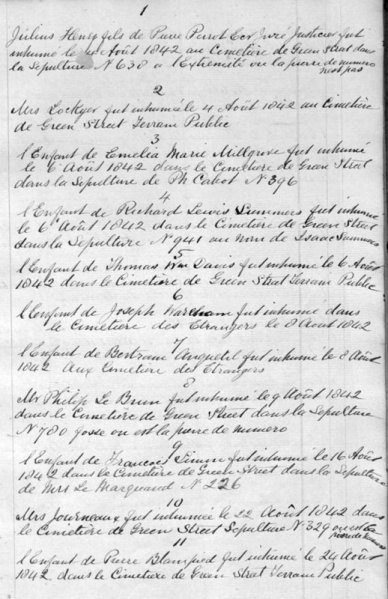 1
Julius Henry fils de Pierre Perrot Cor Juré Justicier fut
inhumé le Août 1842 au Cemetière de Green Street dans
la Sepulture N 638 a l'Extremité ou la pierre de numero
n'est pas
2
Mrs Lockyer fut inhumé le 4 Août 1842 au Cimetière
de Green Street Terrain Public
3
l'Enfant de Emelia Marie Millgrove fut inhumé
le 6 Août 1842 dans le Cemetiere de Green Street
dans la Sepulture de Ph Cabot N 396
4
l'Enfant de Richard Lewis Summers fut inhumé
le 6 Août 1842 dans le Cemetiere de Green Street
dans la Sepulture N 941 au nom de Isaac Summers
5
l'Enfant de Thomas Wm Davis fut inhumé le 6 Août
1842 dans le Cimetière de Green Street Terrain Public
6
l'Enfant de Joseph Wareham fut inhumé dans
le Cimetiere des Etrangers le 8 Août 1842
7
l'Enfant de Bertram Anquetil fut inhumé le 8 Août
1842 Aux Cemetiere des Etrangers
8
Mr Philip Le Brun fut inhumé le 9 Août 1842
dans le Cemetiere de Green Street dans la Sepulture
N 780 fosse ou est la pierre de numero
9
l'Enfant de Francois Simon fut inhumé le 16 Août
1842 dans le Cemetiere de Green Street dans la Sepulture
de Mrs Le Marquand N 226
10
Mrs Journeaux fut inhumé le 22 Août 1842 dans
le Cimetière de Green Street Sepulture N 329 ou est la
pierre de numero
11
l'Enfant de Pierre Blampied fut inhumé le 24 Août
1842 dans le Cimetiere de Green Street Terrain Public